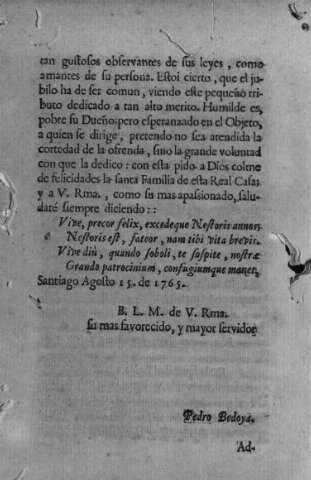 tan gustosos observantes de sus leyes, como
amantes de su persona. Estoi cierto, que el ju-
bilo ha de ser comun, viendo este pequeño tri-
buto dedicado a tan alto merito. Humilde es,
pobre su Dueño; pero esperanzado en el Objeto,
a quien se dirige, pretendo no sea atendida la
cortedad de la ofrenda, sino la grande voluntad
con que la dedico: con esta pido a Dios colme
de felicidades la santa Familia de esta Real Casa;
y a V. Rma., como su mas apasionado, salu-
daré siempre diciendo::
Vive, precor felix, excedeque Nestoris annos,
Nestoris est, fateor, nam tibi vita brevis.
Vive diù, quando soboli, te sospite, nostræ
Grande patrocinium, confugiumque manet.
Santiago Agosto 15. de 1765.
B. L. M. de V. Rma.
su mas favorecido, y mayor servidor
Pedro Bedoya.
Ad-